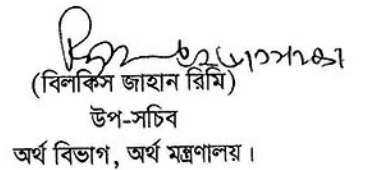 (বিলকিস জাহান রিমি)
উপ-সচিব
অর্থ বিভাগ, অর্থ মন্ত্রণালয়।